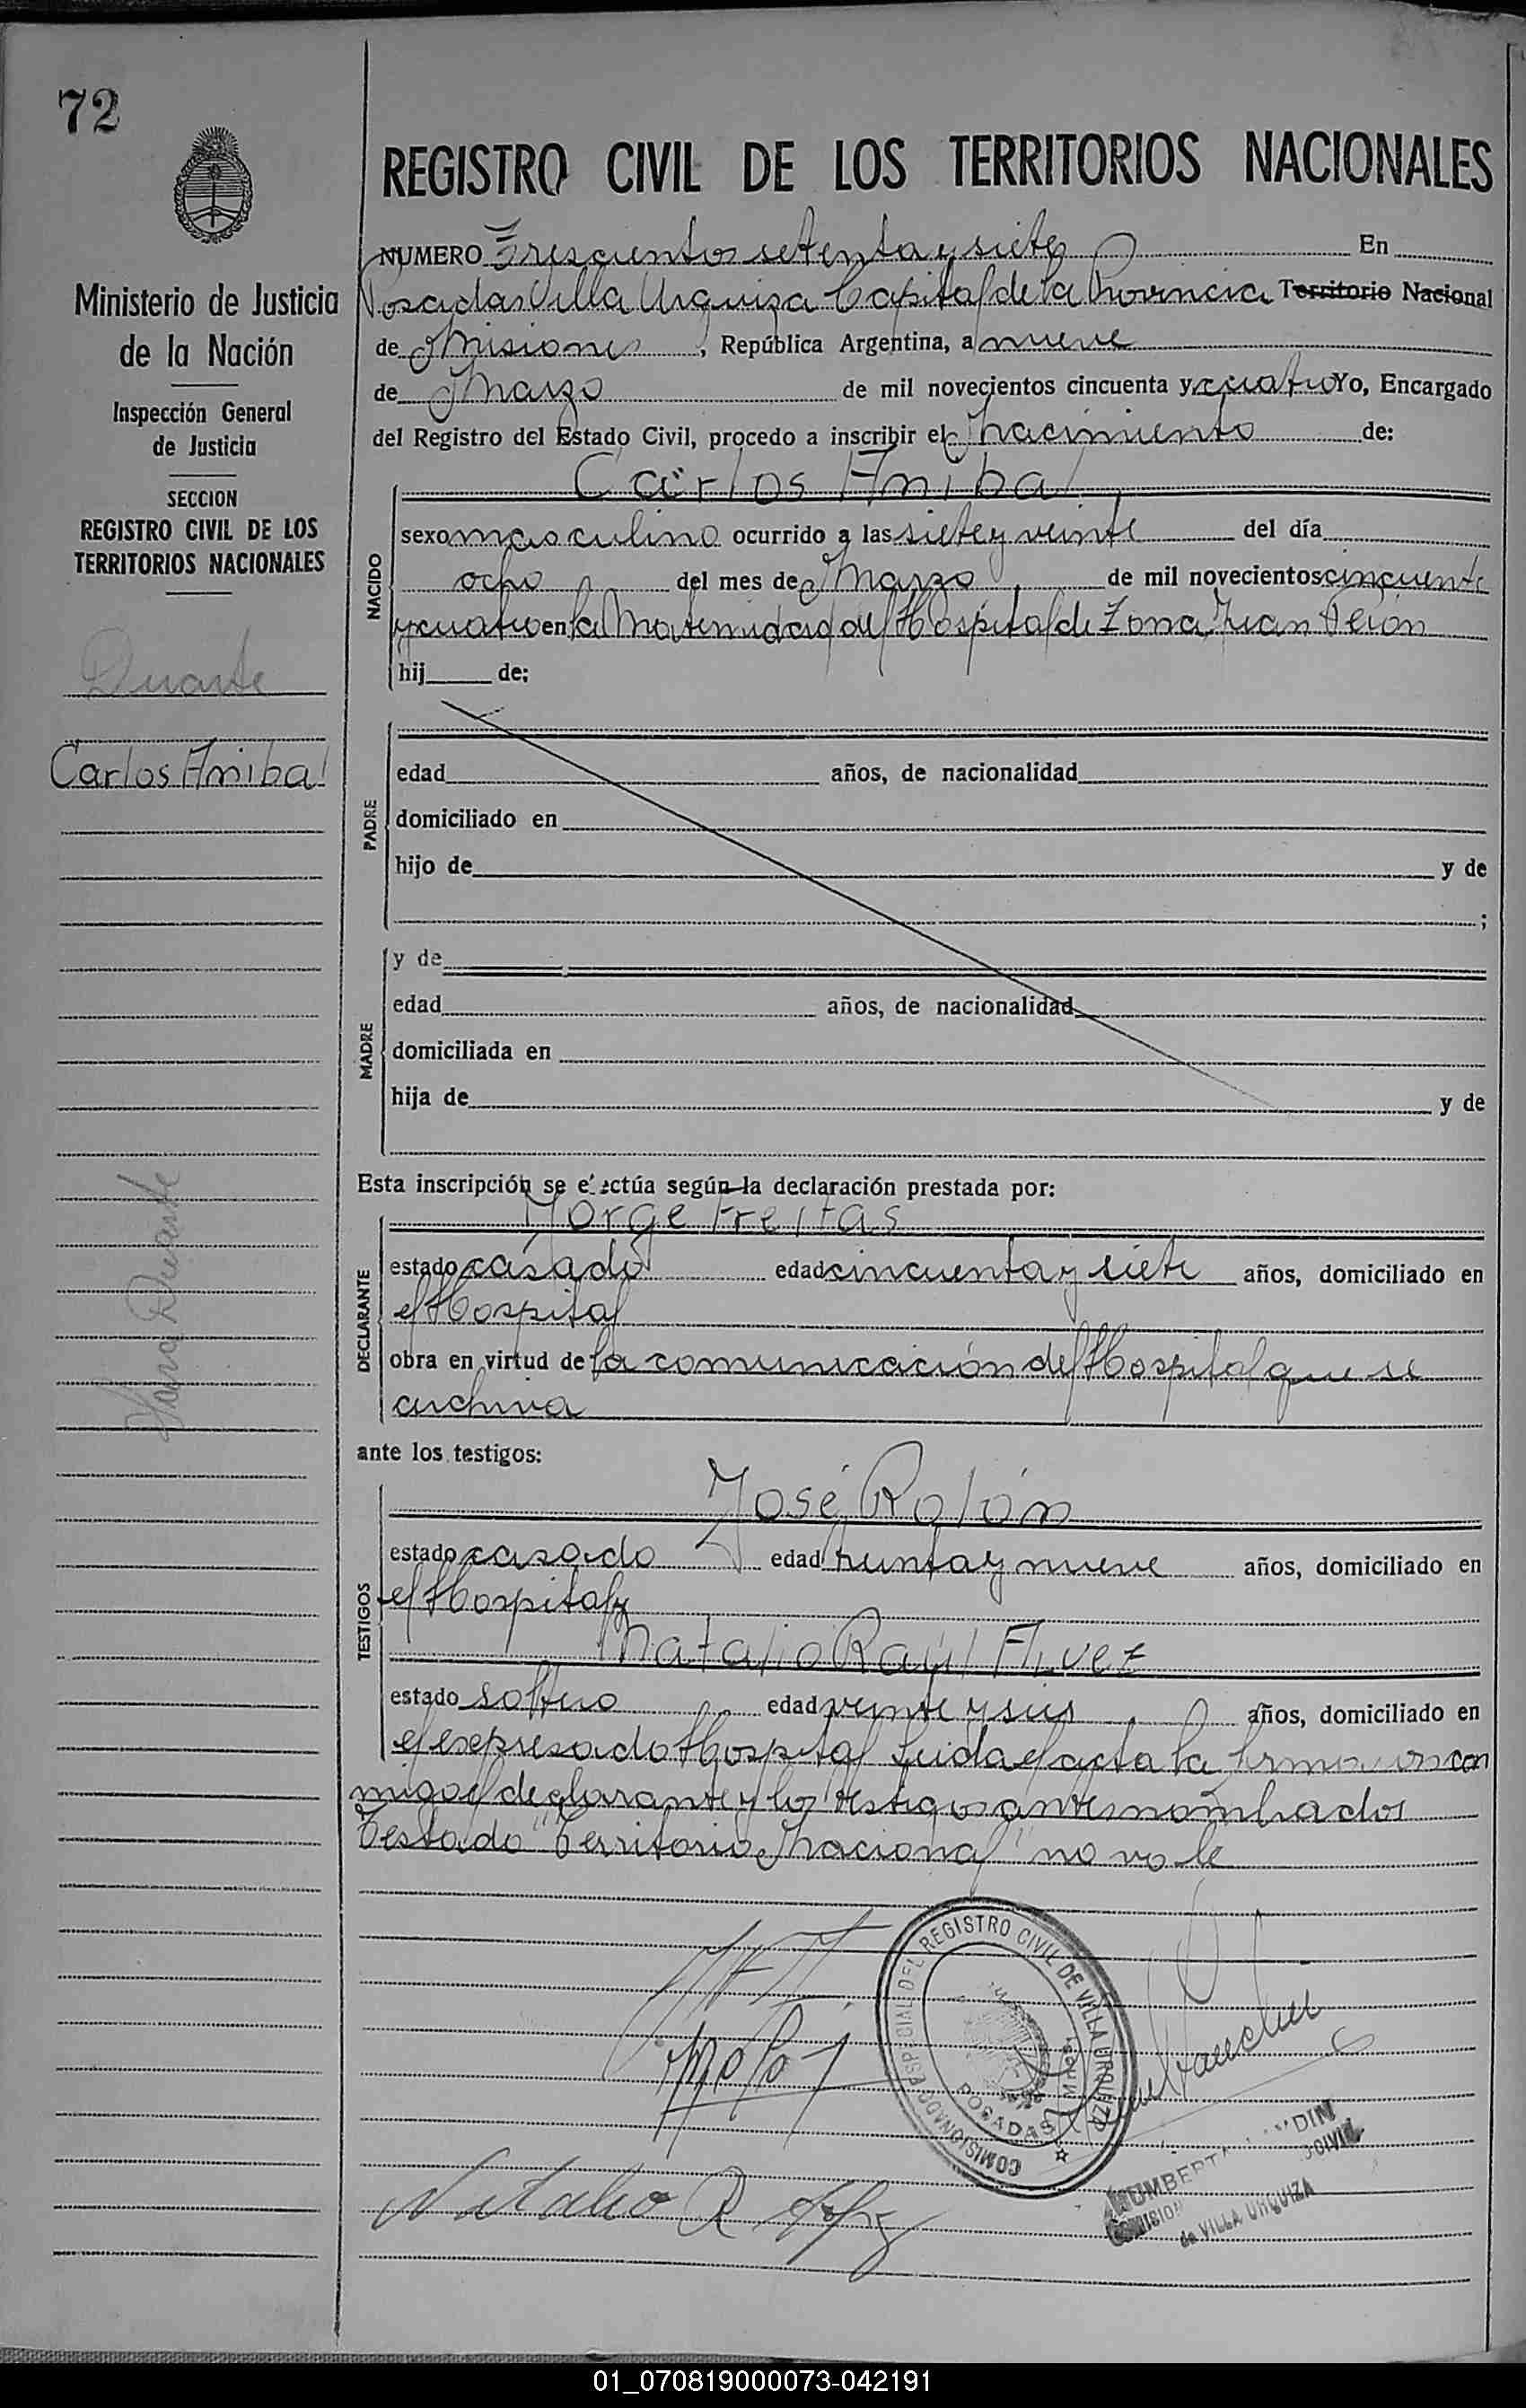 72
REGISTRO CIVIL DE LOS TERRITORIOS NACIONALES
Ministerio de Justicia
de la Nación
Inspección General
de Justicia
SECCION
REGISTRO CIVIL DE LOS
TERRITORIOS NACIONALES
Duarte
Carlos Anibal
Duarte
NUMERO Trescientos setenta y siete En
Posadas Villa Urquiza Capital de la Provincia Territorio Nacional
de Misiones, República Argentina, a nueve
de Marzo de mil novecientos cincuenta y cuatro Yo, Encargado
del Registro del Estado Civil, procedo a inscribir el nacimiento de:
Carlos Anibal
NACIDO
sexo masculino ocurrido a las siete y veinte del día
ocho del mes de Marzo de mil novecientos cincuenta
y cuatro en la Maternidad del Hospital de Zona Juan Perón
hij de:
PADRE
edad años, de nacionalidad
domiciliado en
hijo de y de
;
MADRE
y de
edad años, de nacionalidad
domiciliada en
hija de y de
Esta inscripción se efectúa según la declaración prestada por:
DECLARANTE
Jorge Freitas
estado casado edad cincuenta y siete años, domiciliado en
el Hospital
obra en virtud de la comunicación del Hospital que se
archiva
ante los testigos:
TESTIGOS
José Rolón
estado casado edad treinta y nueve años, domiciliado en
el Hospital y
Natalio Raúl
estado soltero edad veinte y seis años, domiciliado en
el expresado Hospital Leida el acta la firman con
migo el declarante y los testigos antes nombrados
Testado "Territorio Nacional" no vale
COMISIONADO ESPECIAL DEL REGISTRO CIVIL DE VILLA URQUIZA
POSADAS
Natalio R
de VILLA URQUIZA
01_070819000073-042191